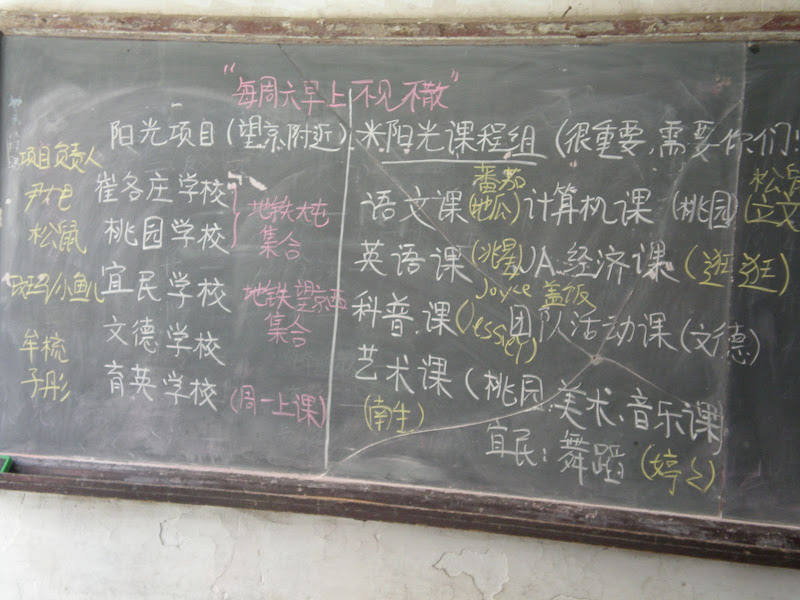 “每周六早上不见不散”
阳光项目(望京附近)
项目负责人
崔各庄学校
松鼠
桃园学校
地铁
集合
斑马/小鱼儿
宜民学校
地铁望京西
集合
牟梳
文德学校
子彤
育英学校(周一上课)
米阳光课程组(很重要,需要你们!
番茄
语文课(地瓜)计算机课(桃园)
英语课 JA:经济课(逛逛)
Joyce 盖饭
科普课(Jessie) 团队活动课(文德)
艺术课(桃园:美术、音乐课
(南生)
宜民:舞蹈(婷婷)